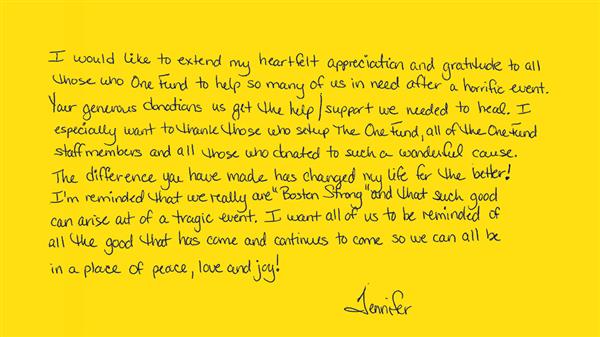 I would like to extend my heartfelt appreciation and gratitude to all
those who One Fund to help so many of us in need after a horrific event.
Your generous donations us get the help/support we needed to heal. I
especially want to thank those who setup The One Fund, all of the One Fund
staff members and all those who donated to such a wonderful cause.
The difference you have made has changed my life for the better!
I'm reminded that we really are "Boston Strong" and that such good
can arise out of a tragic event. I want all of us to be reminded of
all the good that has come and continues to come so we can all be
in a place of peace, love and joy!
Jennifer